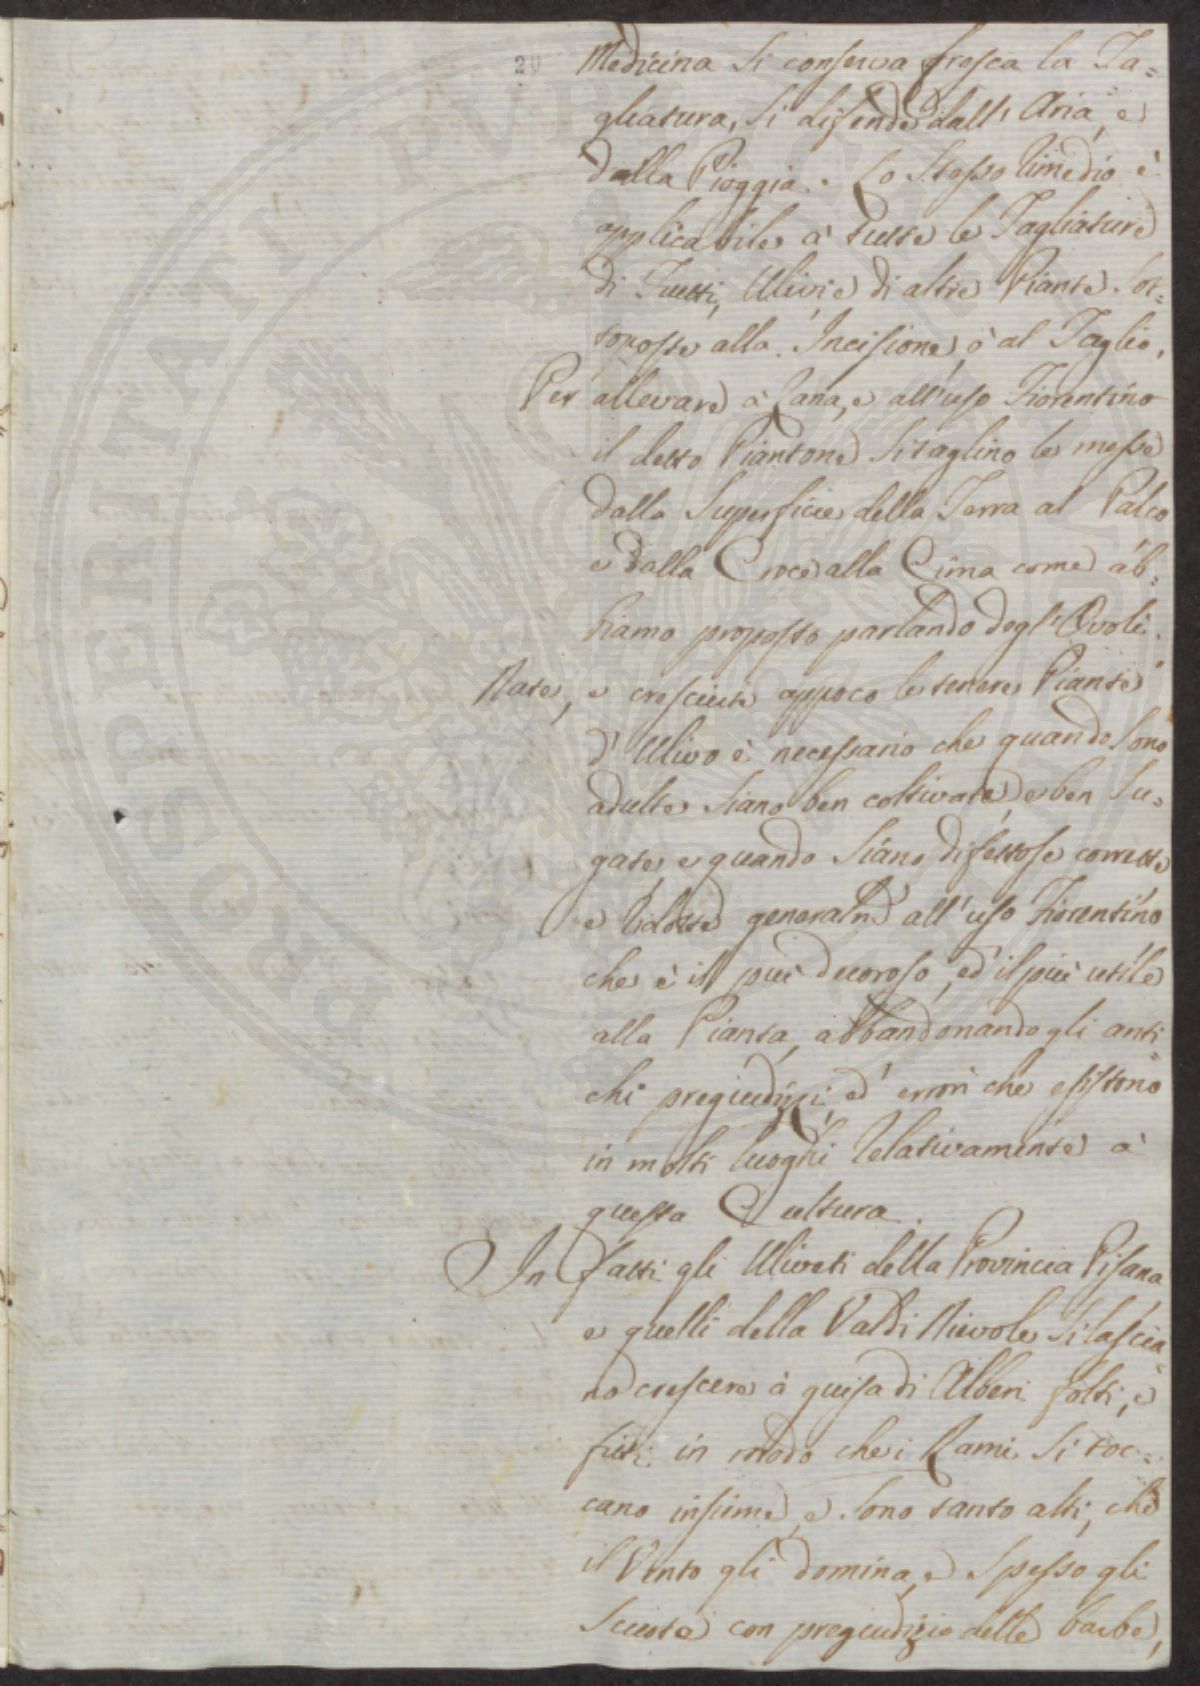 20
Medicina si conserva fresca la Ta=
gliatura, si difende dall' Aria, e
dalla Pioggia. Lo stesso rimedio è
applicabile à tutte le Tagliature
di Frutti, Ulivi e di altre Piante sot=
toposte alla Incisione, ò al Taglio.
Per allevare à Cana, e all'uso Fiorentino
il detto Piantone si taglino le messe
dalla Superficie della Terra al Palco
e dalla Croce alla Cima come ab=
biamo proposto parlando degl'Ovoli.
Nate, e cresciute appoco le tenere Piante
d'Ulivo è necessario che quando sono
adulte siano ben coltivate, e ben su=
gate, e quando siano difettose corrette
e ridotte generalm.e all'uso Fiorentino
che è il più decoroso, ed il più utile
alla Pianta, abbandonando gli anti=
chi pregiudizzi, ed errori che esistono
in molti luoghi relativamente à
questa Cultura.
In fatti gli Uliveti della Provincia Pisana
e quelli della Val di Nievole si lascia=
no crescere à guisa di Alberi folti, e
fitti in modo che i Rami si toc=
cano insieme, e sono tanto alti, che
il Vento gli domina, e spesso gli
scuote con pregiudizio delle barbe,
PROSPERITATI PVBLICAE